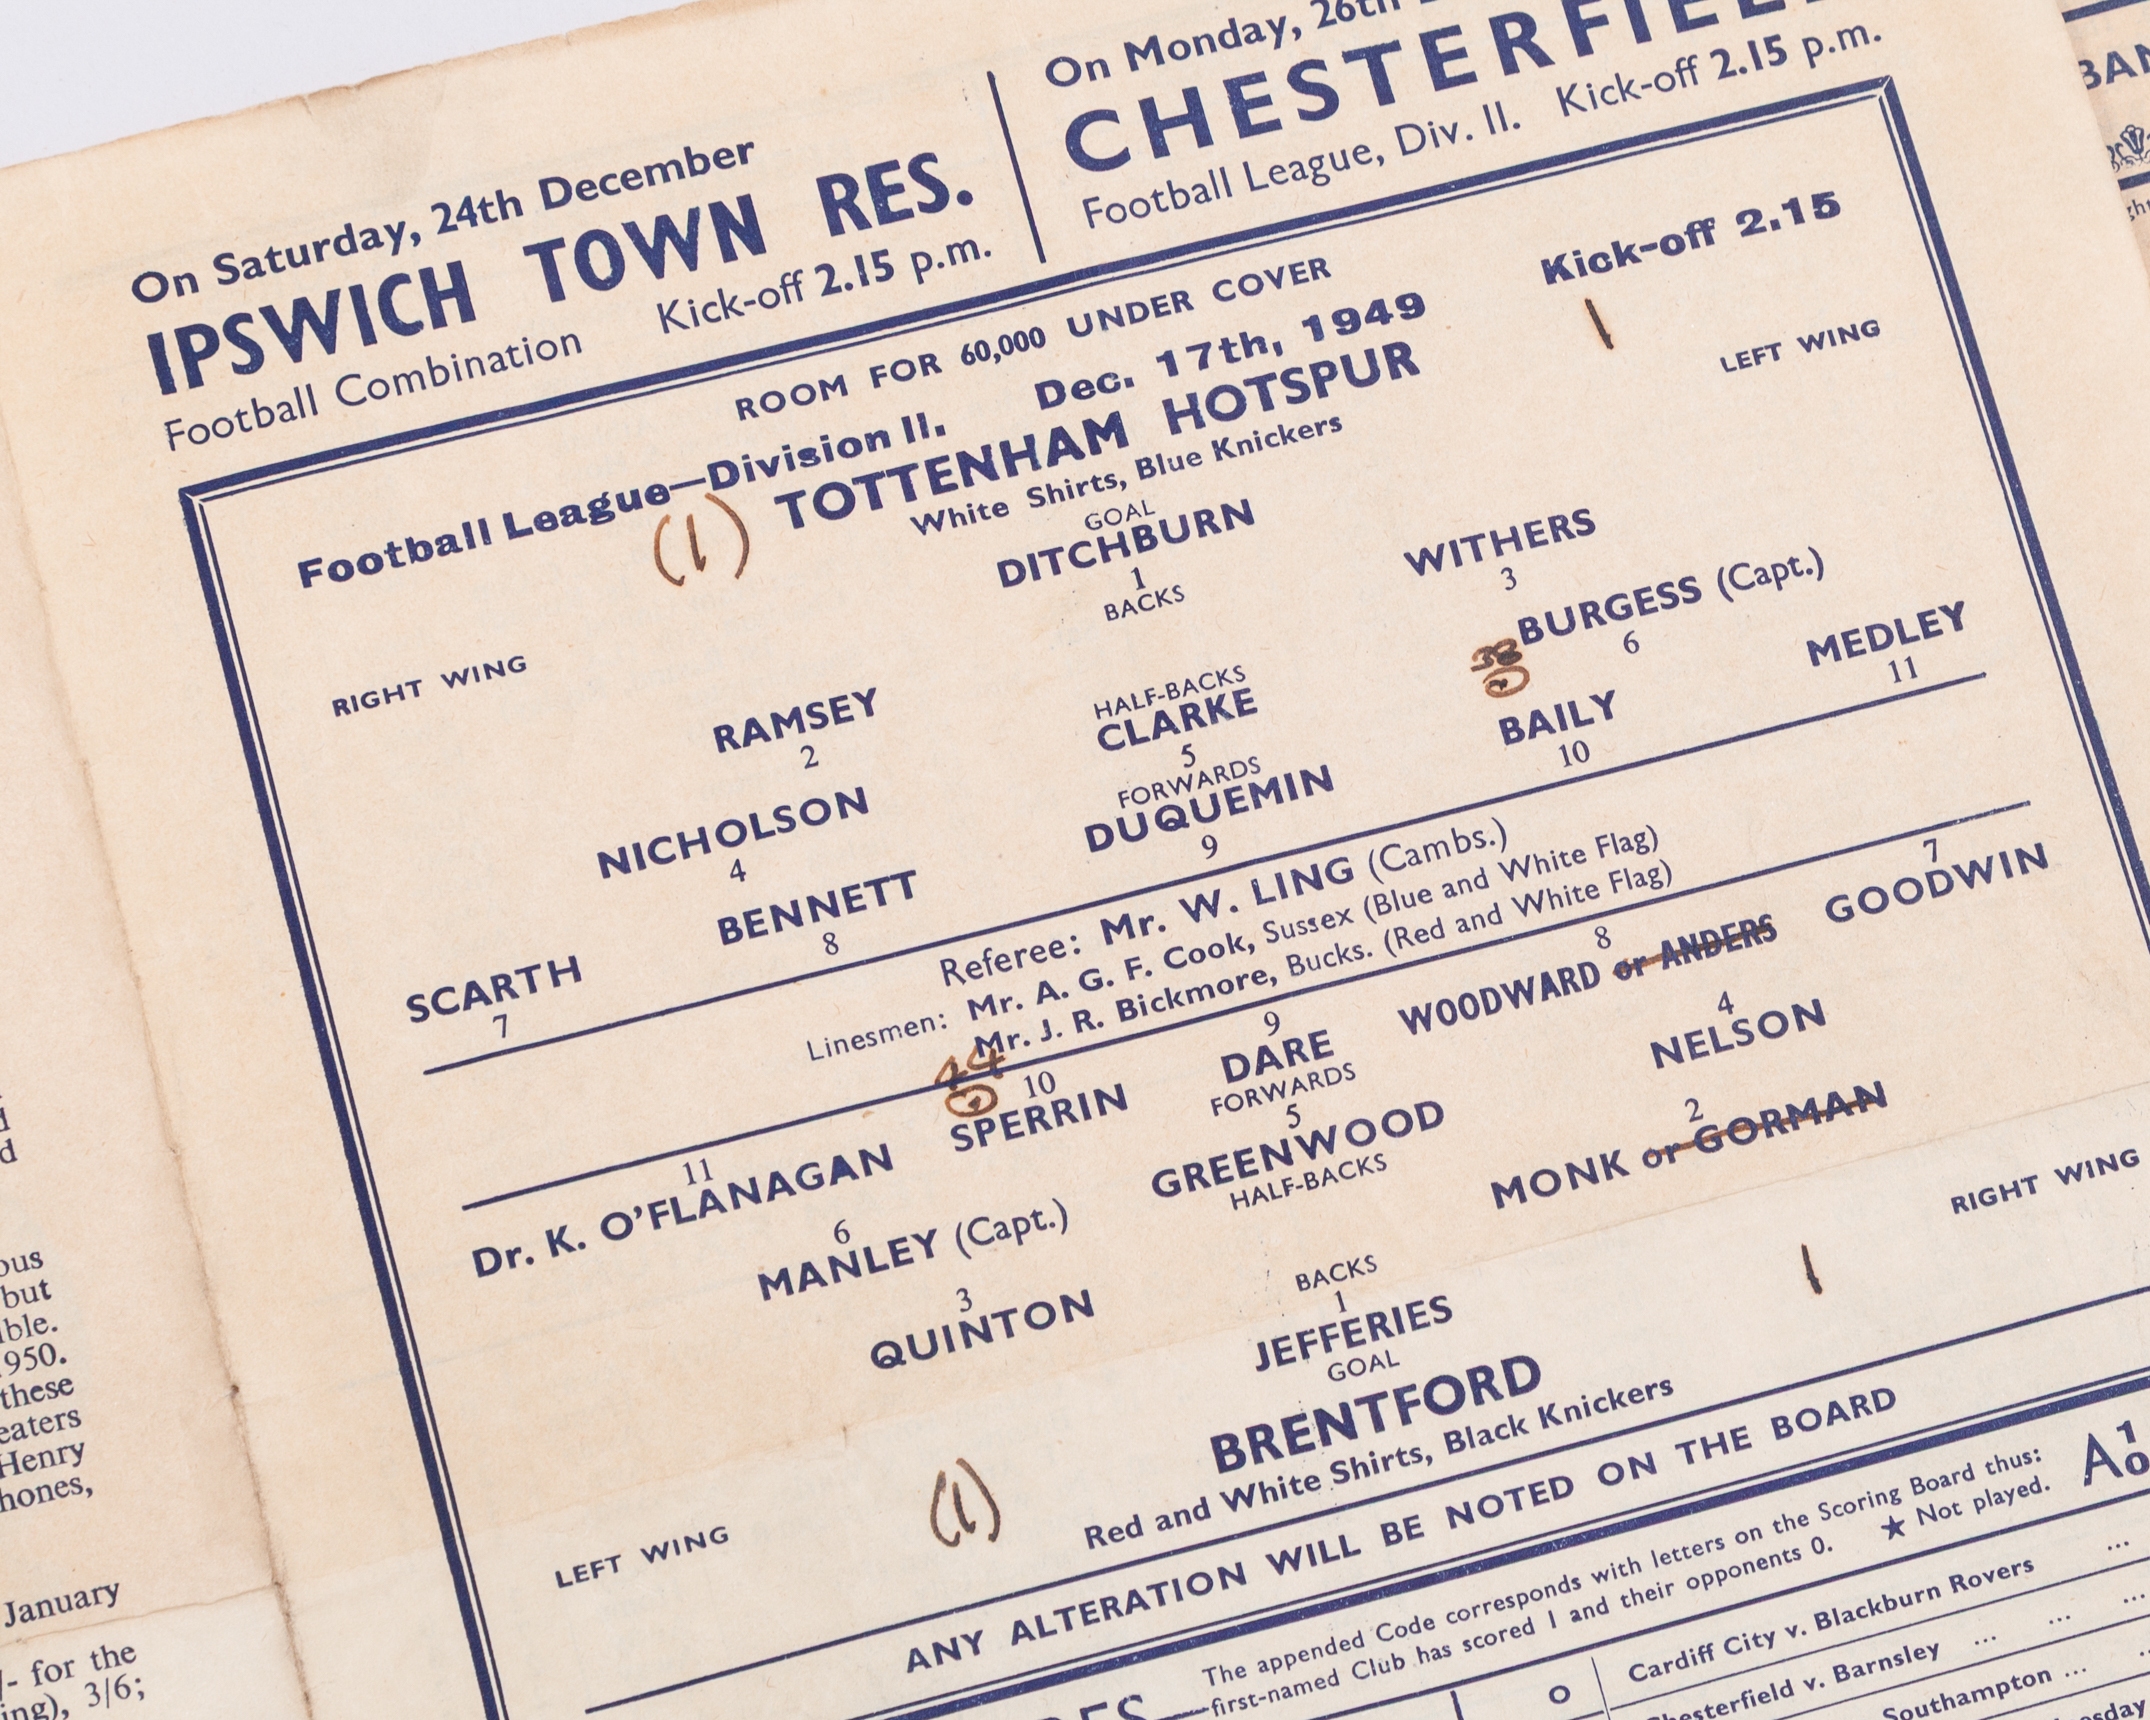 On Saturday, 24th December
IPSWICH TOWN RES.
Football Combination Kick-off 2.15 p.m.
On Monday, 26th
CHESTERFIEL
Football League, Div. II. Kick-off 2.15 p.m.
ROOM FOR 60,000 UNDER COVER
Football League—Division II. Dec. 17th, 1949 Kick-off 2.15
(1) TOTTENHAM HOTSPUR 1
White Shirts, Blue Knickers
RIGHT WING LEFT WING
GOAL
DITCHBURN
1
BACKS
RAMSEY WITHERS
2 3
HALF-BACKS
NICHOLSON CLARKE BURGESS (Capt.)
4 5 6
38
FORWARDS
SCARTH BENNETT DUQUEMIN BAILY MEDLEY
7 8 9 10 11
Referee: Mr. W. LING (Cambs.)
Linesmen: Mr. A. G. F. Cook, Sussex (Blue and White Flag)
Mr. J. R. Bickmore, Bucks. (Red and White Flag)
44
11 10 9 8 7
Dr. K. O'FLANAGAN SPERRIN DARE WOODWARD or ANDERS GOODWIN
FORWARDS
6 5 4
MANLEY (Capt.) GREENWOOD NELSON
HALF-BACKS
3 2
QUINTON MONK or GORMAN
BACKS
1
JEFFERIES
GOAL
LEFT WING RIGHT WING
(1) BRENTFORD 1
Red and White Shirts, Black Knickers
ANY ALTERATION WILL BE NOTED ON THE BOARD
The appended Code corresponds with letters on the Scoring Board thus:
first-named Club has scored 1 and their opponents 0. ★ Not played.
A 1
0
O
Cardiff City v. Blackburn Rovers ...
hesterfield v. Barnsley ... ... ...
Southampton ... ...
esday
ous
but
ible.
950.
these
eaters
Henry
hones,
January
/- for the
ing), 3/6;
BAN